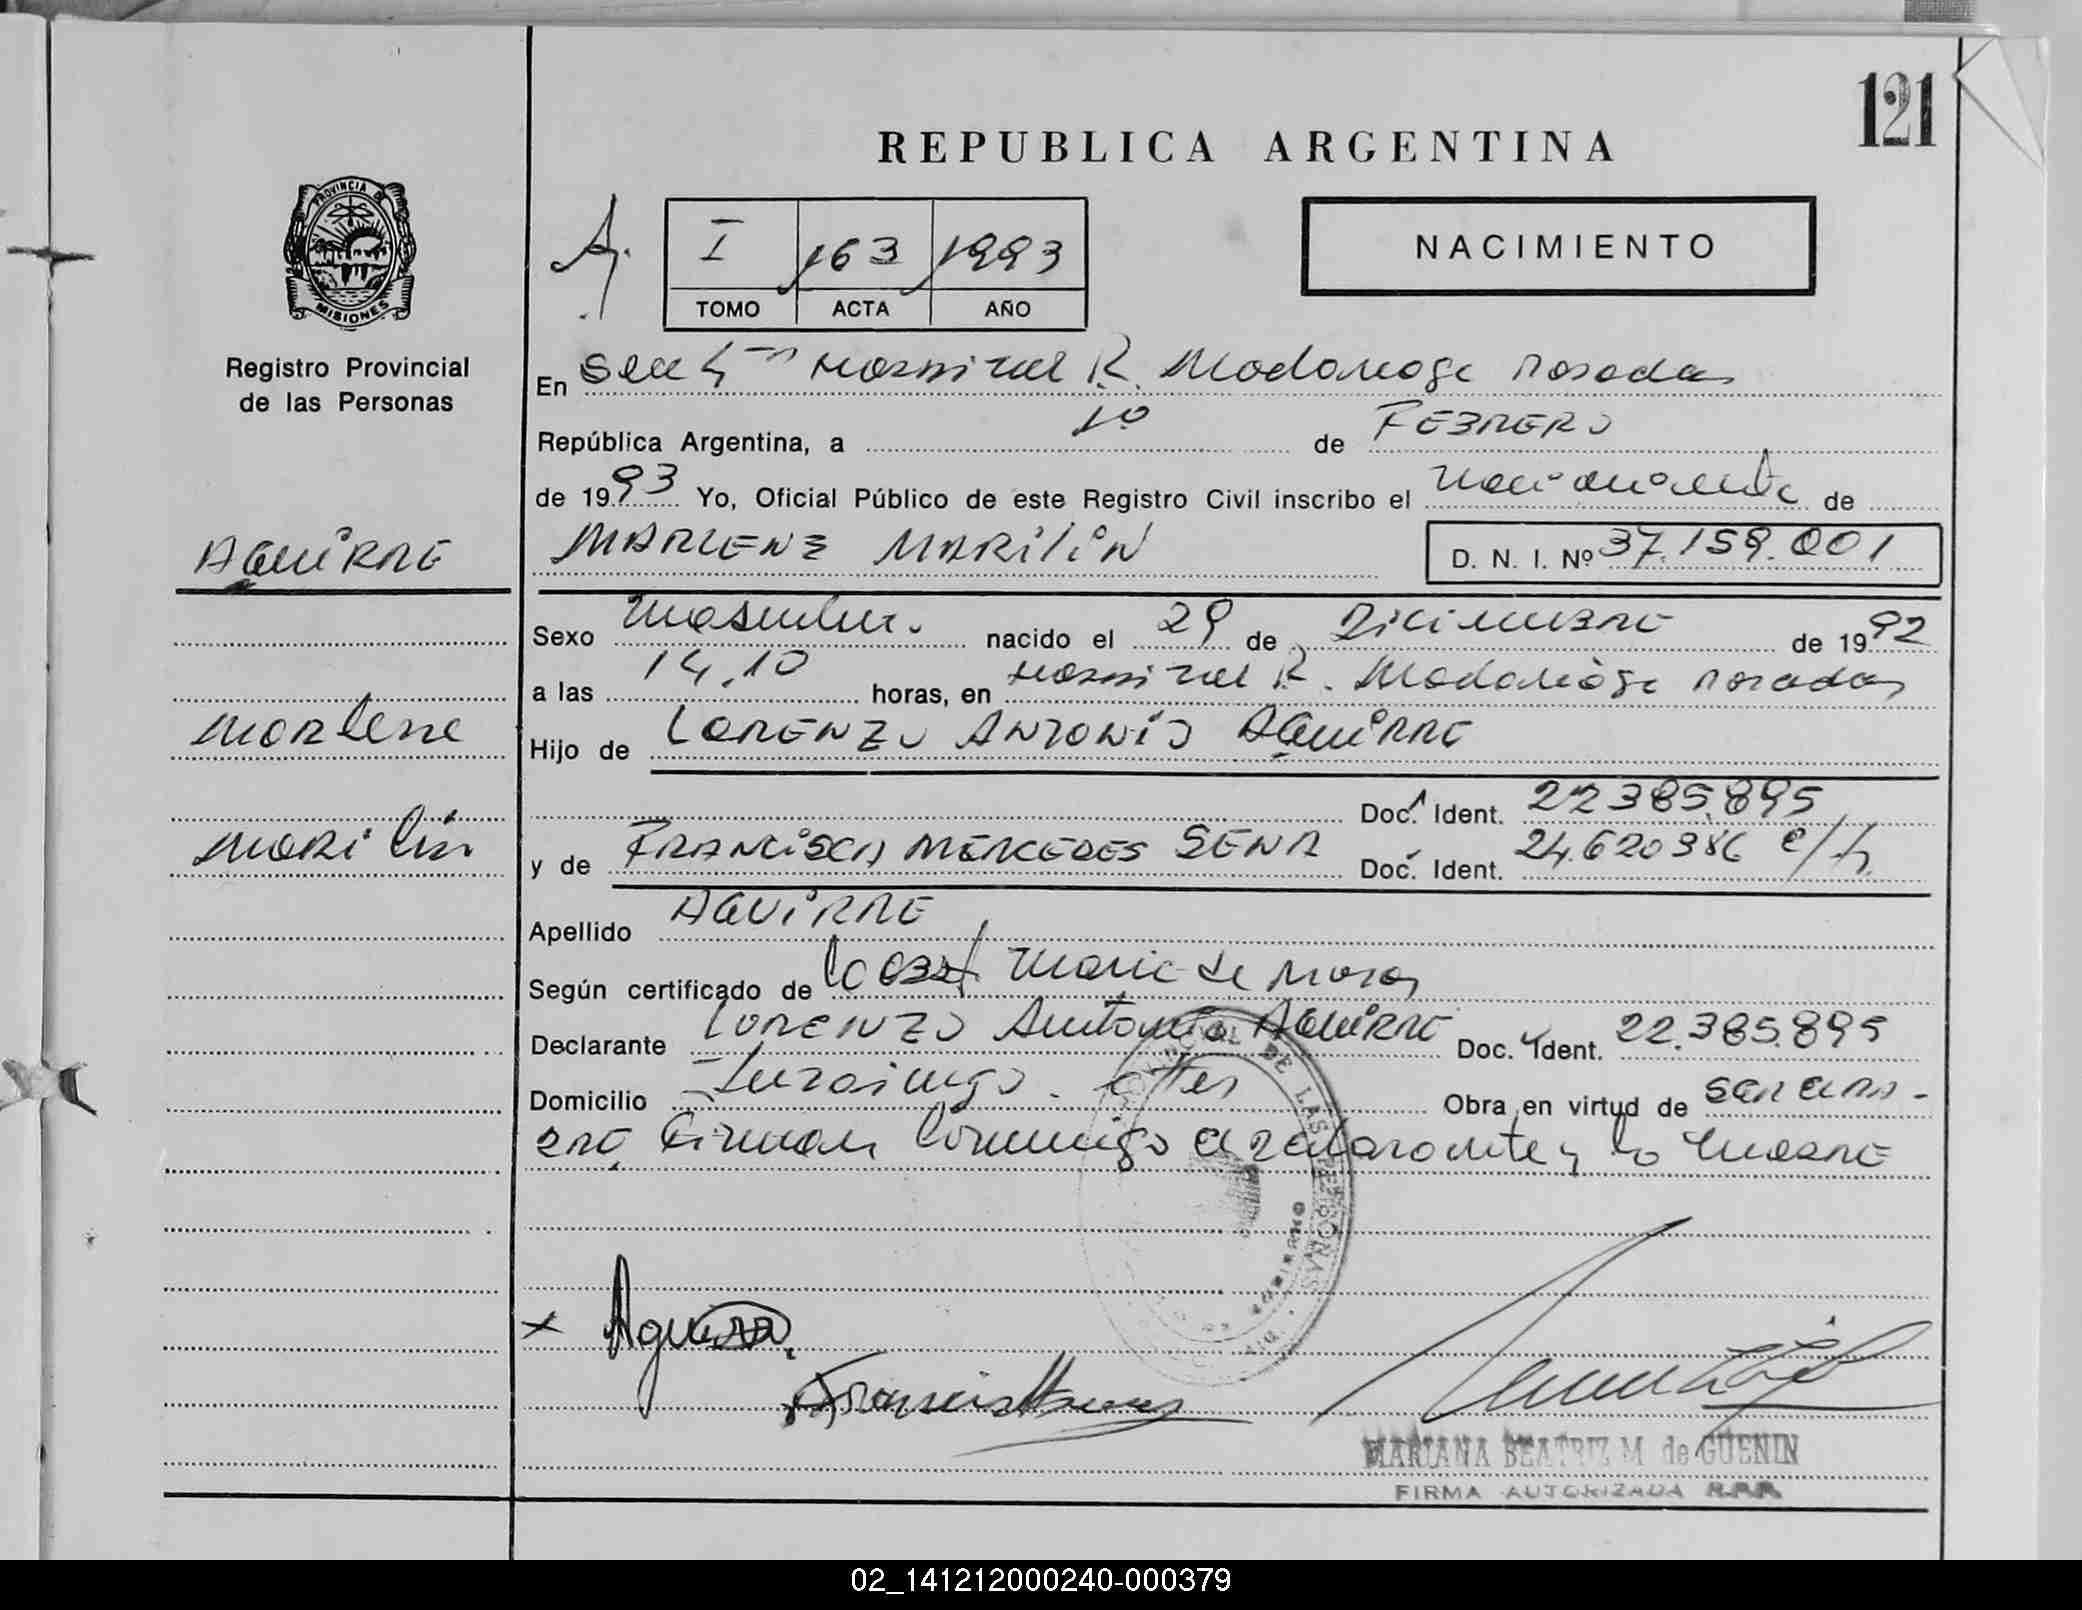 121
REPUBLICA ARGENTINA
I 163 1993
TOMO ACTA AÑO
NACIMIENTO
PROVINCIA DE
MISIONES
Registro Provincial
de las Personas
En Hospital R. Madariaga Posadas
República Argentina, a 10 de FEBRERO
de 1993 Yo, Oficial Público de este Registro Civil inscribo el nacimiento de
AGUIRRE
MARLENE MARILIN
D. N. I. Nº 37.159.001
Sexo nacido el 29 de DICIEMBRE de 1992
a las 14,10 horas, en Hospital R. Madariaga Posadas
Marlene
Hijo de LORENZO ANTONIO AGUIRRE
Doc. Ident. 22385.895
Marilin
y de FRANCISCA MERCEDES SENA Doc. Ident. 24.620386
Apellido AGUIRRE
Según certificado de Maria de
Declarante LORENZO Antonio AGUIRRE Doc. Ident. 22.385.895
Domicilio Ituzaingo Obra en virtud de
Firman Conmigo el declarante y la MADRE
DE LAS PERSONAS
MARIANA BEATRIZ M de GUENIN
FIRMA AUTORIZADA R.P.P.
02_141212000240-000379